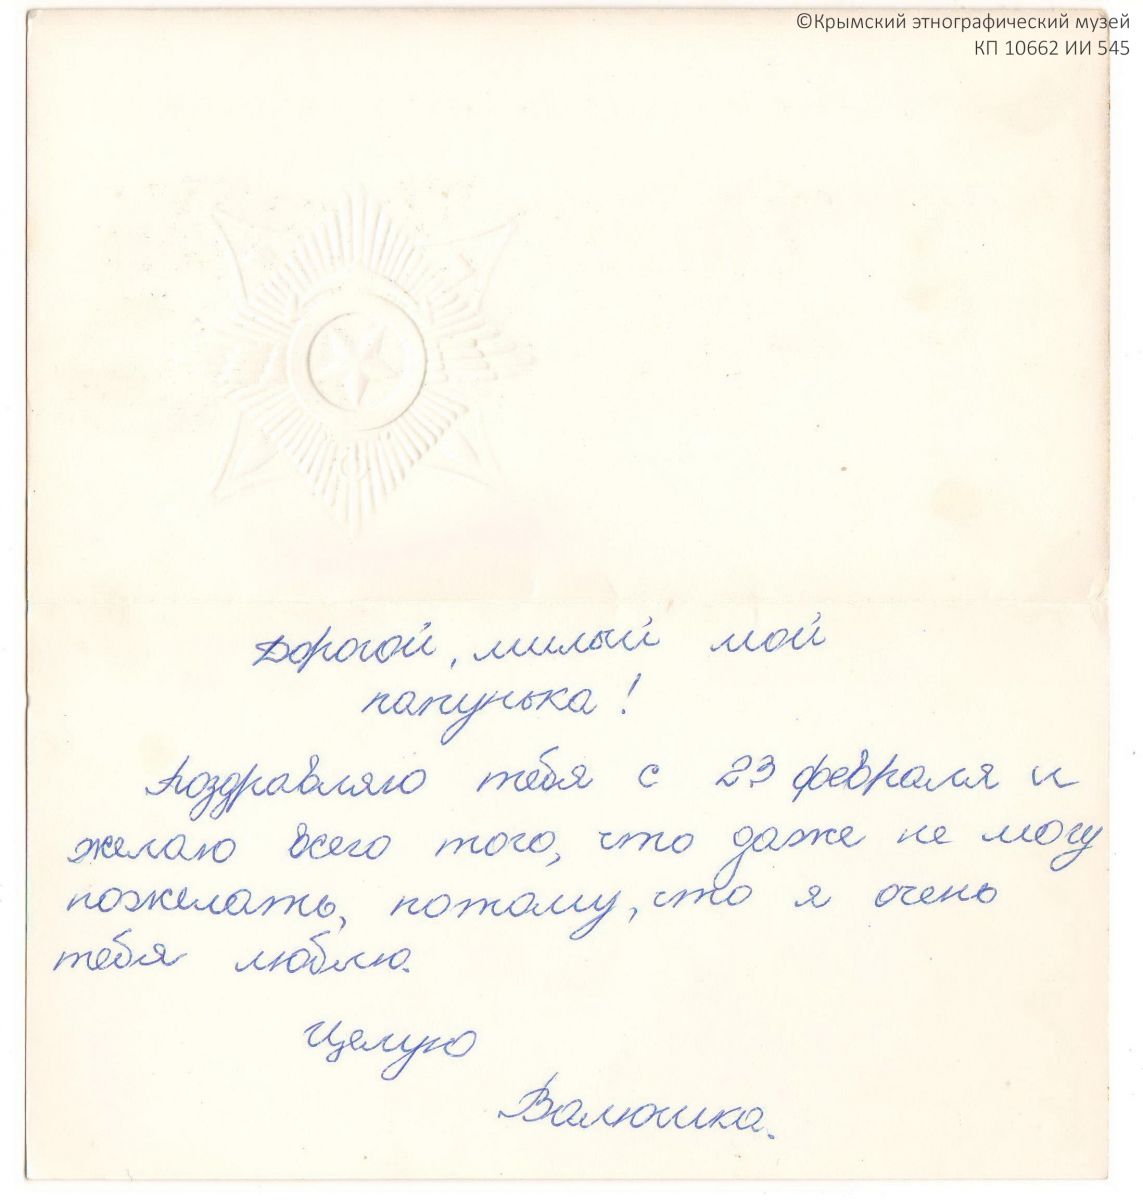 ©Крымский этнографический музей
КП 10662 ИИ 545
Дорогой, милый мой
папунька!
Поздравляю тебя с 23 февраля и
желаю всего того, что даже не могу
пожелать, потому, что я очень
тебя люблю.
Целую
Валюшка.